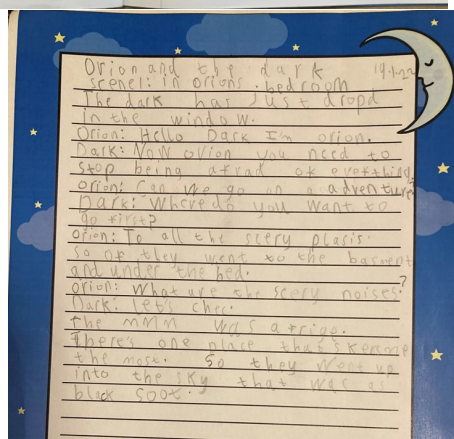 Orion and the dark 19.1.22
scene1: in orions bedroom
The dark has just dropd
in the window.
Orion: Hello Dark I'm orion.
Dark: Now orion you need to
stop being afrad of everthing
orion: Can we go on a adventure?
Dark: Where do you want to
go first?
orien: To all the scery plasis.
so of they went to the basment
and under the bed.
orion: What are the scery noises?
Dark: Let's chec.
the mmm was a frige.
There's one place that
the most. So they went up
into the sky that was as
black soot.